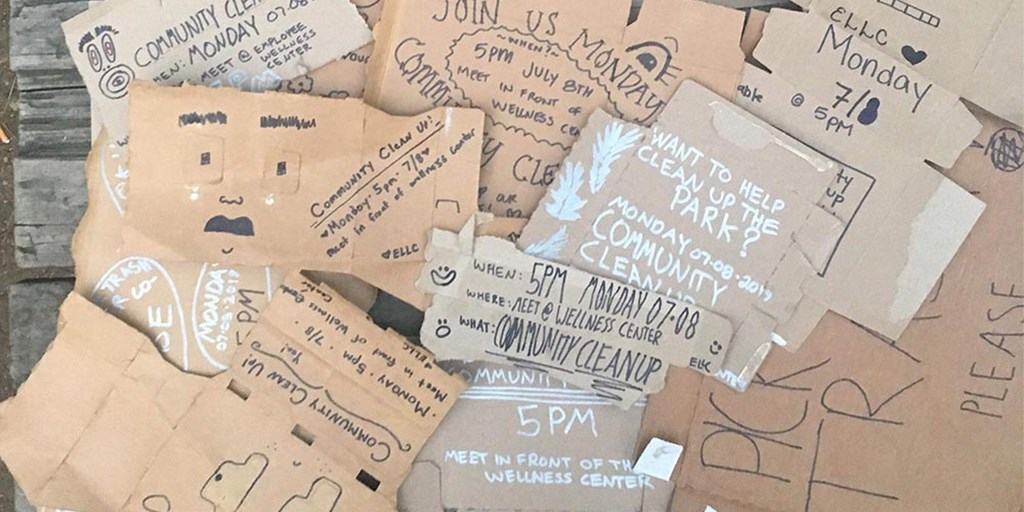 COMMUNITY CLEAN
WHEN: MONDAY 07.08
MEET @ EMPLOYEE
WELLNESS
CENTER
JOIN US MONDAY
~WHEN?~
5PM JULY 8TH
MEET
IN FRONT OF
WELLNESS CE
ELLC ♥
Monday
7/8
@ 5PM
able
COMMUNITY CLEAN UP!
♥Monday· 5pm· 7/8♥
meet in front of wellness center
♥ELLC
Y CLE
OUR
WANT TO HELP
CLEAN UP THE
PARK?
MONDAY 07.08.2019
COMMUNITY
CLEAN UP
TY
UP
WHEN: 5PM MONDAY 07.08
WHERE: MEET @ WELLNESS CENTER
WHAT: COMMUNITY CLEANUP
ELLC
TRASH
MONDA
5PM
Meet in front of Wellness Center
·MONDAY· 5pm· 7/8·
COMMUNITY CLEAN UP!
COMMUNITY
5PM
MEET IN FRONT OF TH
WELLNESS CENTER
PICK
TRA
PLEASE